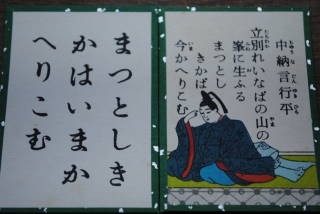 まつとしき
かはいまか
へりこむ
中納言行平
立別れいなばの山の
峯に生ふる
まつとし
きかば
今かへりこむ